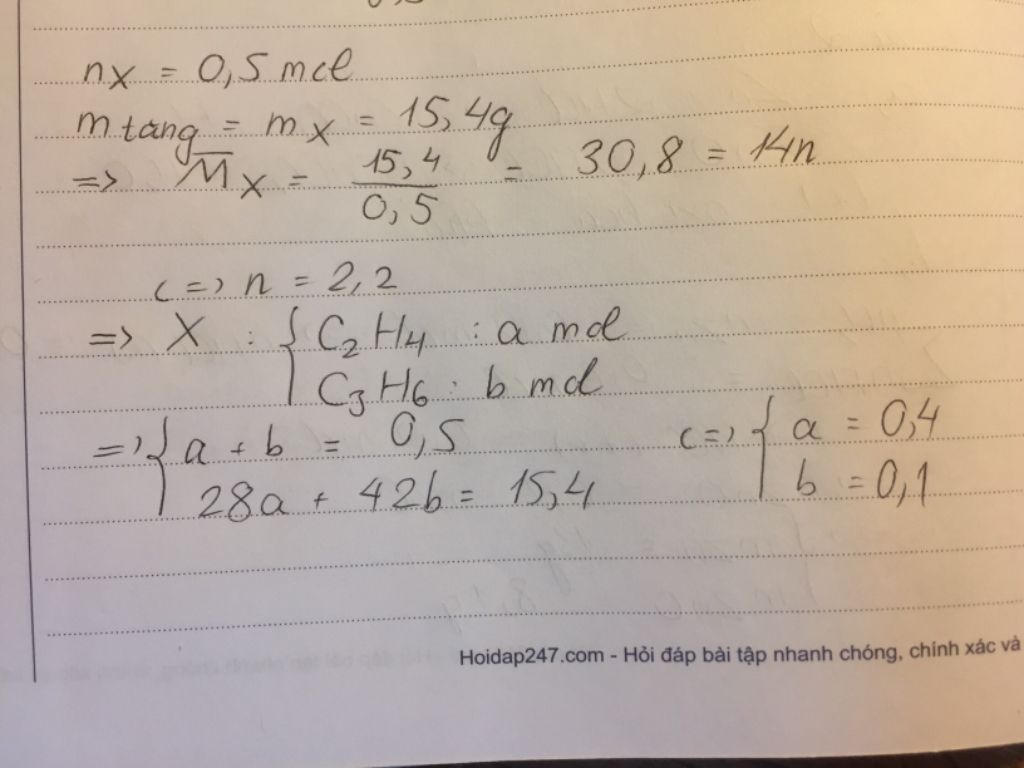 nX = 0,5 mol
m tăng = mX = 15,4g
=> M̅X = 15,4 / 0,5 = 30,8 = 14n
<=> n = 2,2
=> X : { C2H4 : a mol
C3H6 : b mol
=> { a + b = 0,5 <=> { a = 0,4
28a + 42b = 15,4 b = 0,1
Hoidap247.com - Hỏi đáp bài tập nhanh chóng, chính xác và